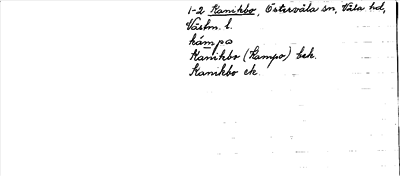 1-2 Kanikbo, Östervåla sn, Våla hd,
Västm. l.
kámpo
Kanikbo (Kampo) bek.
Kanikbo ek.